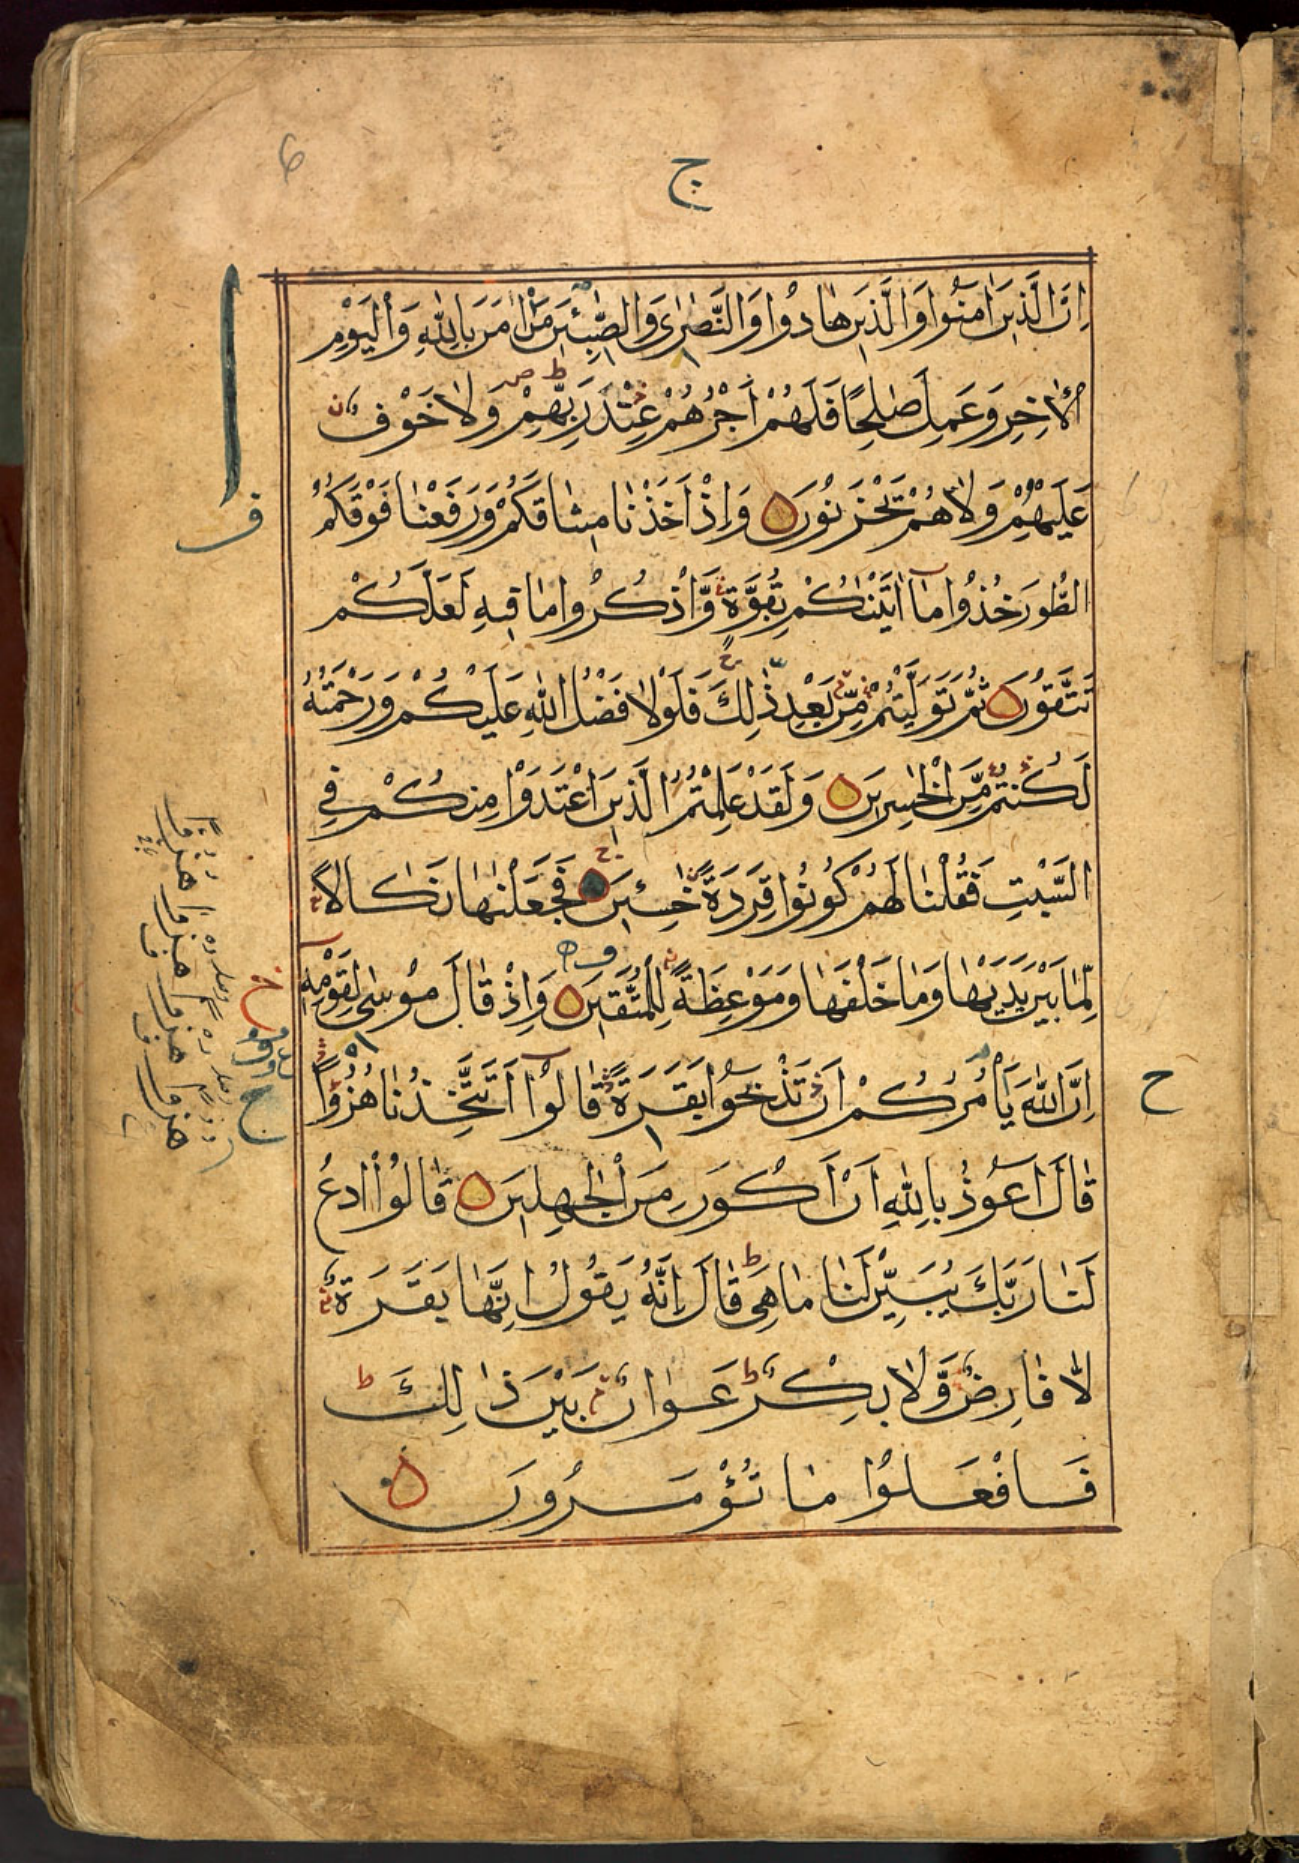 ج
اِنَّ الَّذِيْنَ اٰمَنُوْا وَالَّذِيْنَ هَادُوْا وَالنَّصٰرٰى وَالصّٰبِئِيْنَ مَنْ اٰمَنَ بِاللّٰهِ وَالْيَوْمِ
الْاٰخِرِ وَعَمِلَ صٰلِحًا فَلَهُمْ اَجْرُهُمْ عِنْدَ رَبِّهِمْ وَلَا خَوْفٌ
عَلَيْهِمْ وَلَا هُمْ يَحْزَنُوْنَ وَاِذْ اَخَذْنَا مِيْثَاقَكُمْ وَرَفَعْنَا فَوْقَكُمُ
الطُّوْرَ خُذُوْا مَآ اٰتَيْنٰكُمْ بِقُوَّةٍ وَّاذْكُرُوْا مَا فِيْهِ لَعَلَّكُمْ
تَتَّقُوْنَ ثُمَّ تَوَلَّيْتُمْ مِّنْۢ بَعْدِ ذٰلِكَ فَلَوْلَا فَضْلُ اللّٰهِ عَلَيْكُمْ وَرَحْمَتُهٗ
لَكُنْتُمْ مِّنَ الْخٰسِرِيْنَ وَلَقَدْ عَلِمْتُمُ الَّذِيْنَ اعْتَدَوْا مِنْكُمْ فِي
السَّبْتِ فَقُلْنَا لَهُمْ كُوْنُوْا قِرَدَةً خٰسِئِيْنَ فَجَعَلْنٰهَا نَكَالًا
لِّمَا بَيْنَ يَدَيْهَا وَمَا خَلْفَهَا وَمَوْعِظَةً لِّلْمُتَّقِيْنَ وَاِذْ قَالَ مُوْسٰى لِقَوْمِهٖ
اِنَّ اللّٰهَ يَاْمُرُكُمْ اَنْ تَذْبَحُوْا بَقَرَةً قَالُوْٓا اَتَتَّخِذُنَا هُزُوًا
قَالَ اَعُوْذُ بِاللّٰهِ اَنْ اَكُوْنَ مِنَ الْجٰهِلِيْنَ قَالُوا ادْعُ
لَنَا رَبَّكَ يُبَيِّنْ لَّنَا مَا هِيَ قَالَ اِنَّهٗ يَقُوْلُ اِنَّهَا بَقَرَةٌ
لَّا فَارِضٌ وَّلَا بِكْرٌ عَوَانٌ بَيْنَ ذٰلِكَ
فَافْعَلُوْا مَا تُؤْمَرُوْنَ
ح